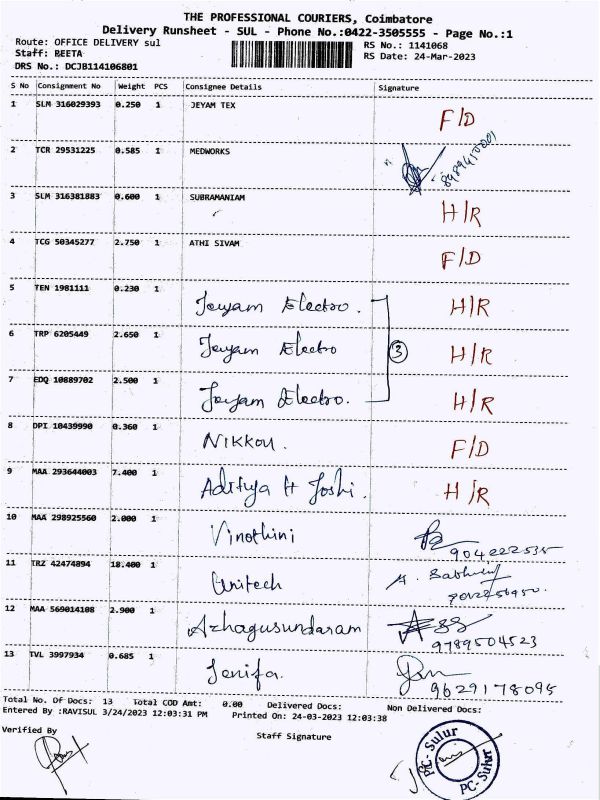 THE PROFESSIONAL COURIERS, Coimbatore
Delivery Runsheet - SUL - Phone No.:0422-3505555 - Page No.:1
Route: OFFICE DELIVERY sul RS No.: 1141068
Staff: REETA RS Date: 24-Mar-2023
DRS No.: DCJB114106801
S No Consignment No Weight PCS Consignee Details Signature
1 SLM 316029393 0.250 1 JEYAM TEX F/D
2 TCR 29531225 0.585 1 MEDWORKS
3 SLM 316381883 0.600 1 SUBRAMANIAM H/R
4 TCG 50345277 2.750 1 ATHI SIVAM F/D
5 TEN 1981111 0.230 1 Jeyam Electro. H/R
6 TRP 6205449 2.650 1 Jeyam Electro 3 H/R
7 EDQ 10889702 2.500 1 Jeyam Electro. H/R
8 DPI 10439990 0.360 1 NIKKOU. F/D
9 MAA 293644003 7.400 1 Aditya H Joshi. H/R
10 MAA 298925560 2.000 1 Vinothini 904222535
11 TRZ 42474894 18.400 1 Unitech
12 MAA 569014108 2.900 1 Azhagusundaram 9789504523
13 TVL 3997934 0.685 1 Jenifa. 9629178095
Total No. Of Docs: 13 Total COD Amt: 0.00 Delivered Docs: Non Delivered Docs:
Entered By :RAVISUL 3/24/2023 12:03:31 PM Printed On: 24-03-2023 12:03:38
Verified By Staff Signature
PC-Sulur
PC-Sulur